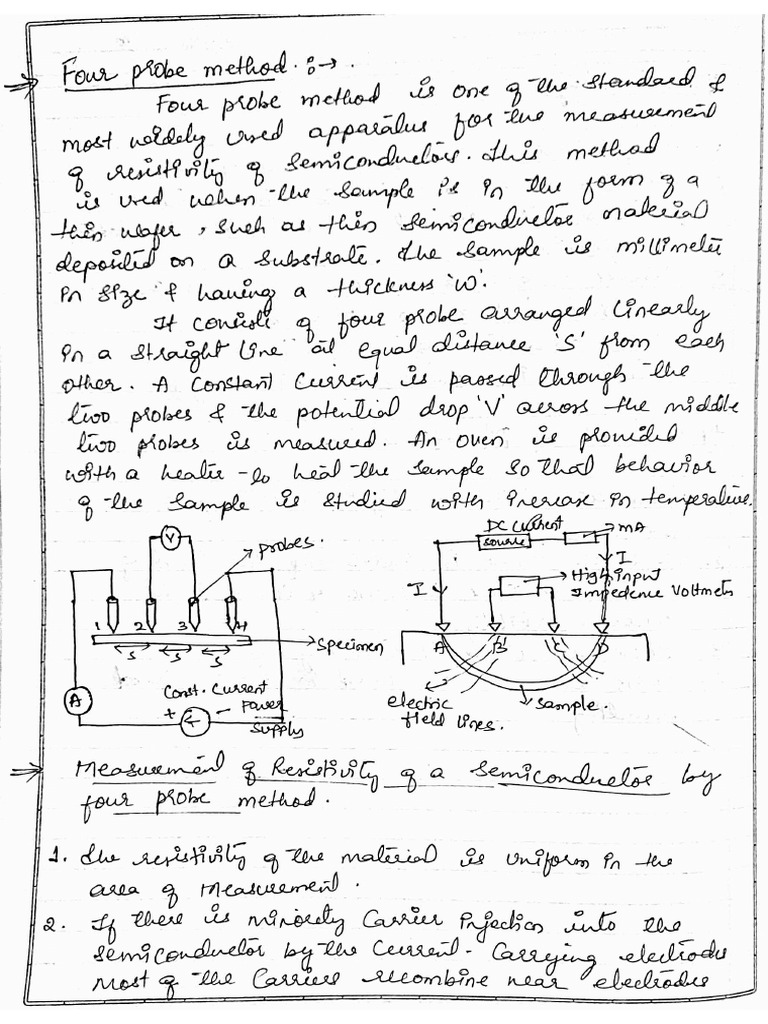 Four probe method. :→.
Four probe method is one of the standard &
most widely used apparatus for the measurement
of resistivity of semiconductors. This method
is used when the sample is in the form of a
thin wafer, such as thin semiconductor material
deposited on a substrate. The sample is millimeter
in size & having a thickness 'w'.
It consists of four probe arranged linearly
in a straight line at equal distance 'S' from each
other. A constant current is passed through the
two probes & the potential drop 'V' across the middle
two probes is measured. An oven is provided
with a heater to heat the sample so that behavior
of the sample is studied with increase in temperature.
V
probes.
1 2 3 4
S S S
Specimen
A
Const. current
+ - Power
supply
DC current
source
mA
I
I
High input
Impedence Voltmeter
A B C D
electric
field lines.
sample.
Measurement of Resistivity of a semiconductor by
four probe method.
1. The resistivity of the material is uniform in the
area of measurement.
2. If there is minority carrier injection into the
semiconductor by the current-carrying electrodes
most of the carriers recombine near electrodes